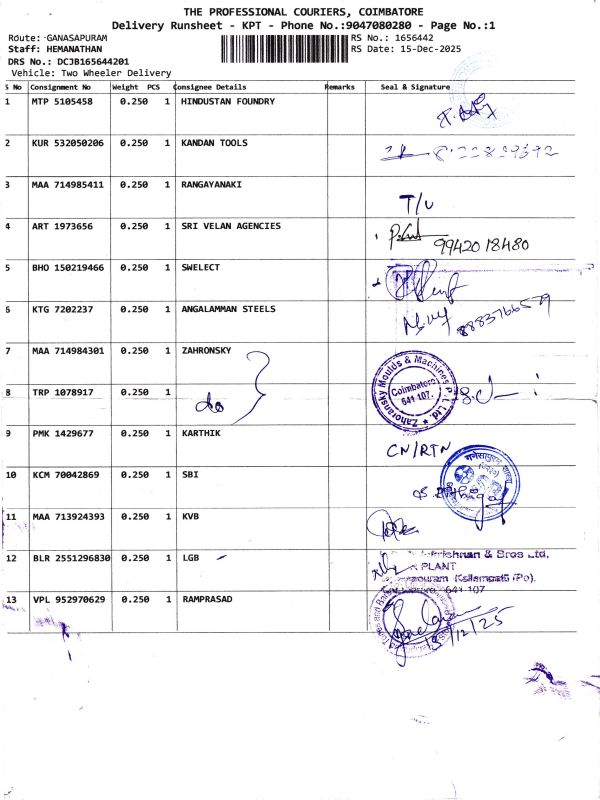 THE PROFESSIONAL COURIERS, COIMBATORE
Delivery Runsheet - KPT - Phone No.:9047080280 - Page No.:1
Route: GANASAPURAM RS No.: 1656442
Staff: HEMANATHAN RS Date: 15-Dec-2025
DRS No.: DCJB165644201
Vehicle: Two Wheeler Delivery
S No Consignment No Weight PCS Consignee Details Remarks Seal & Signature
1 MTP 5105458 0.250 1 HINDUSTAN FOUNDRY
2 KUR 532050206 0.250 1 KANDAN TOOLS
3 MAA 714985411 0.250 1 RANGAYANAKI T/U
4 ART 1973656 0.250 1 SRI VELAN AGENCIES 9942018480
5 BHO 150219466 0.250 1 SWELECT
6 KTG 7202237 0.250 1 ANGALAMMAN STEELS 8883766579
7 MAA 714984301 0.250 1 ZAHRONSKY
Zahoransky Moulds & Machines P. Ltd.
Coimbatore
641 107.
8 TRP 1078917 0.250 1 do
9 PMK 1429677 0.250 1 KARTHIK CN/RTN
10 KCM 70042869 0.250 1 SBI
11 MAA 713924393 0.250 1 KVB
12 BLR 2551296830 0.250 1 LGB
krishnan & Bros Ltd,
PLANT
Kallampatti (Po).
641 107
13 VPL 952970629 0.250 1 RAMPRASAD
15/12/25